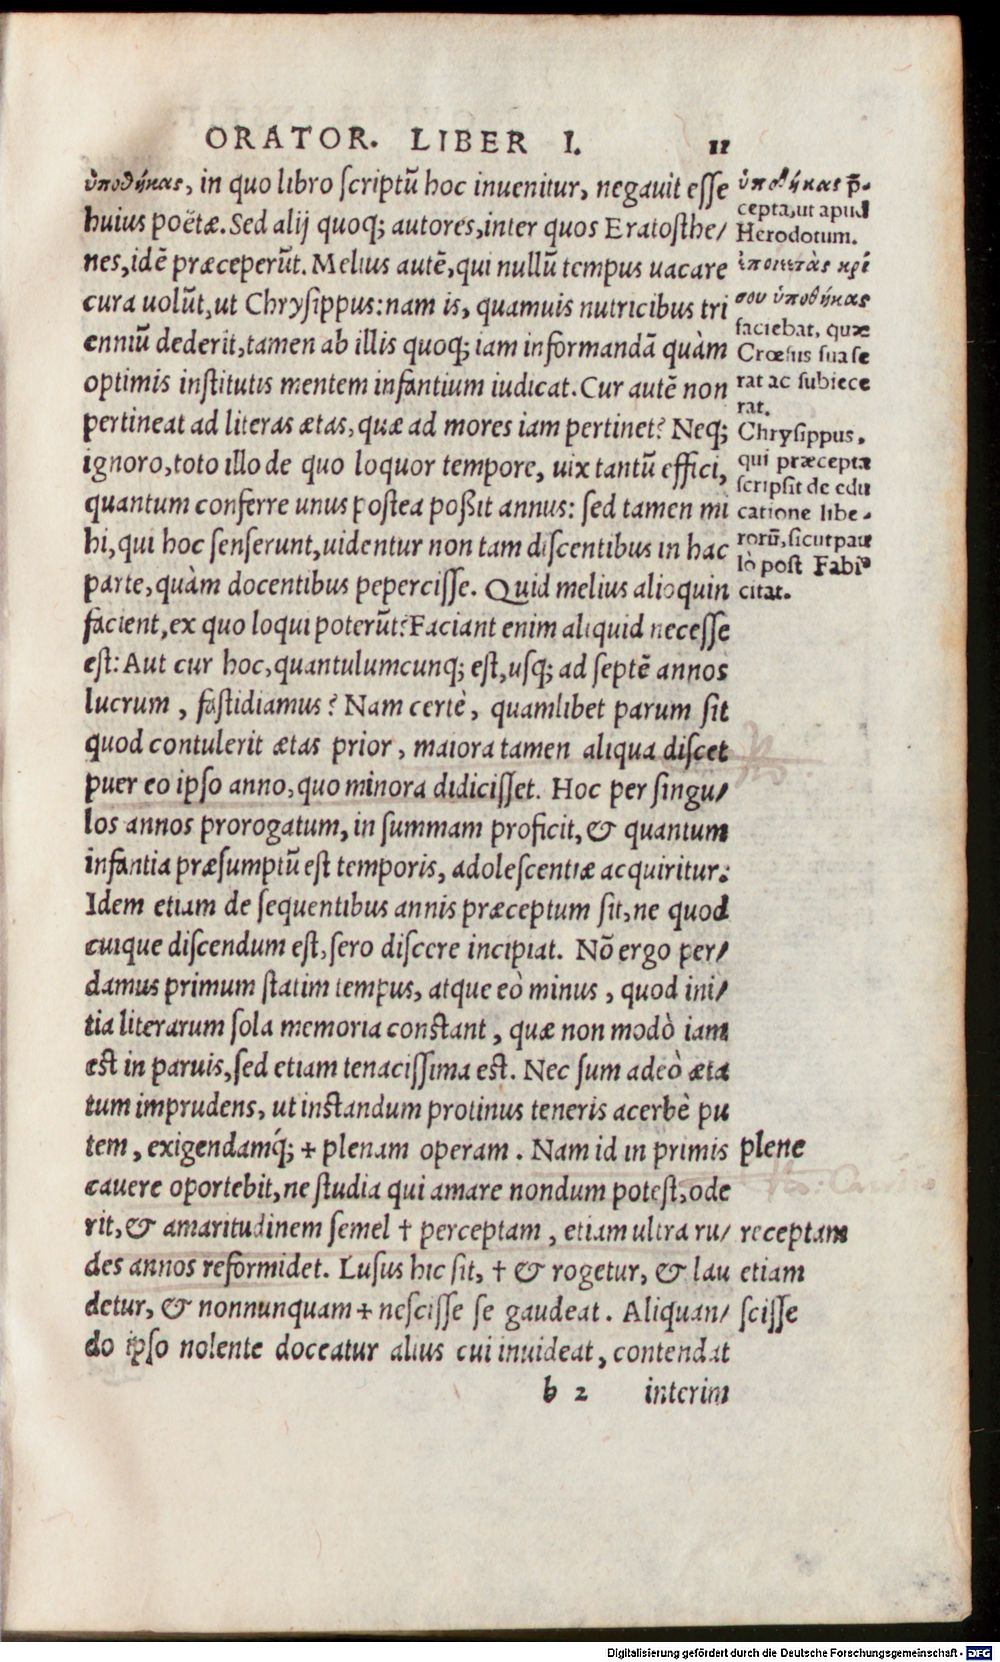 ORATOR. LIBER I. 11
ὑποθήκας, in quo libro scriptū hoc inuenitur, negauit esse
huius poëtæ. Sed alij quoq; autores, inter quos Eratosthe/
nes, idē præceperūt. Melius autē, qui nullū tempus uacare
cura uolūt, ut Chrysippus: nam is, quamuis nutricibus tri
enniū dederit, tamen ab illis quoq; iam informandā quàm
optimis institutis mentem infantium iudicat. Cur autē non
pertineat ad literas ætas, quæ ad mores iam pertinet? Neq;
ignoro, toto illo de quo loquor tempore, uix tantū effici,
quantum conferre unus postea poßit annus: sed tamen mi
hi, qui hoc senserunt, uidentur non tam discentibus in hac
parte, quàm docentibus pepercisse. Quid melius alioquin
facient, ex quo loqui poterūt? Faciant enim aliquid necesse
est: Aut cur hoc, quantulumcunq; est, usq; ad septē annos
lucrum, fastidiamus? Nam certè, quamlibet parum sit
quod contulerit ætas prior, maiora tamen aliqua discet
puer eo ipso anno, quo minora didicisset. Hoc per singu/
los annos prorogatum, in summam proficit, & quantum
infantia præsumptū est temporis, adolescentiæ acquiritur:
Idem etiam de sequentibus annis præceptum sit, ne quod
cuique discendum est, sero discere incipiat. Nō ergo per/
damus primum statim tempus, atque eò minus, quod ini/
tia literarum sola memoria constant, quæ non modò iam
est in paruis, sed etiam tenacissima est. Nec sum adeò æta
tum imprudens, ut instandum protinus teneris acerbè pu
tem, exigendamq́; + plenam operam. Nam id in primis
cauere oportebit, ne studia qui amare nondum potest, ode
rit, & amaritudinem semel † perceptam, etiam ultra ru/
des annos reformidet. Lusus hic sit, † & rogetur, & lau
detur, & nonnunquam + nescisse se gaudeat. Aliquan/
do ipso nolente doceatur alius cui inuideat, contendat
b 2 interim
ὑποθήκας p̄-
cepta, ut apud
Herodotum.
κρί
σου ὑποθήκας
faciebat, quæ
Crœsus suase
rat ac subiece
rat.
Chrysippus,
qui præcepta
scripsit de edu
catione libe-
rorū, sicut pau
lò post Fabiꝰ
citat.
plene
receptam
etiam
scisse
Digitalisierung gefördert durch die Deutsche Forschungsgemeinschaft - DFG